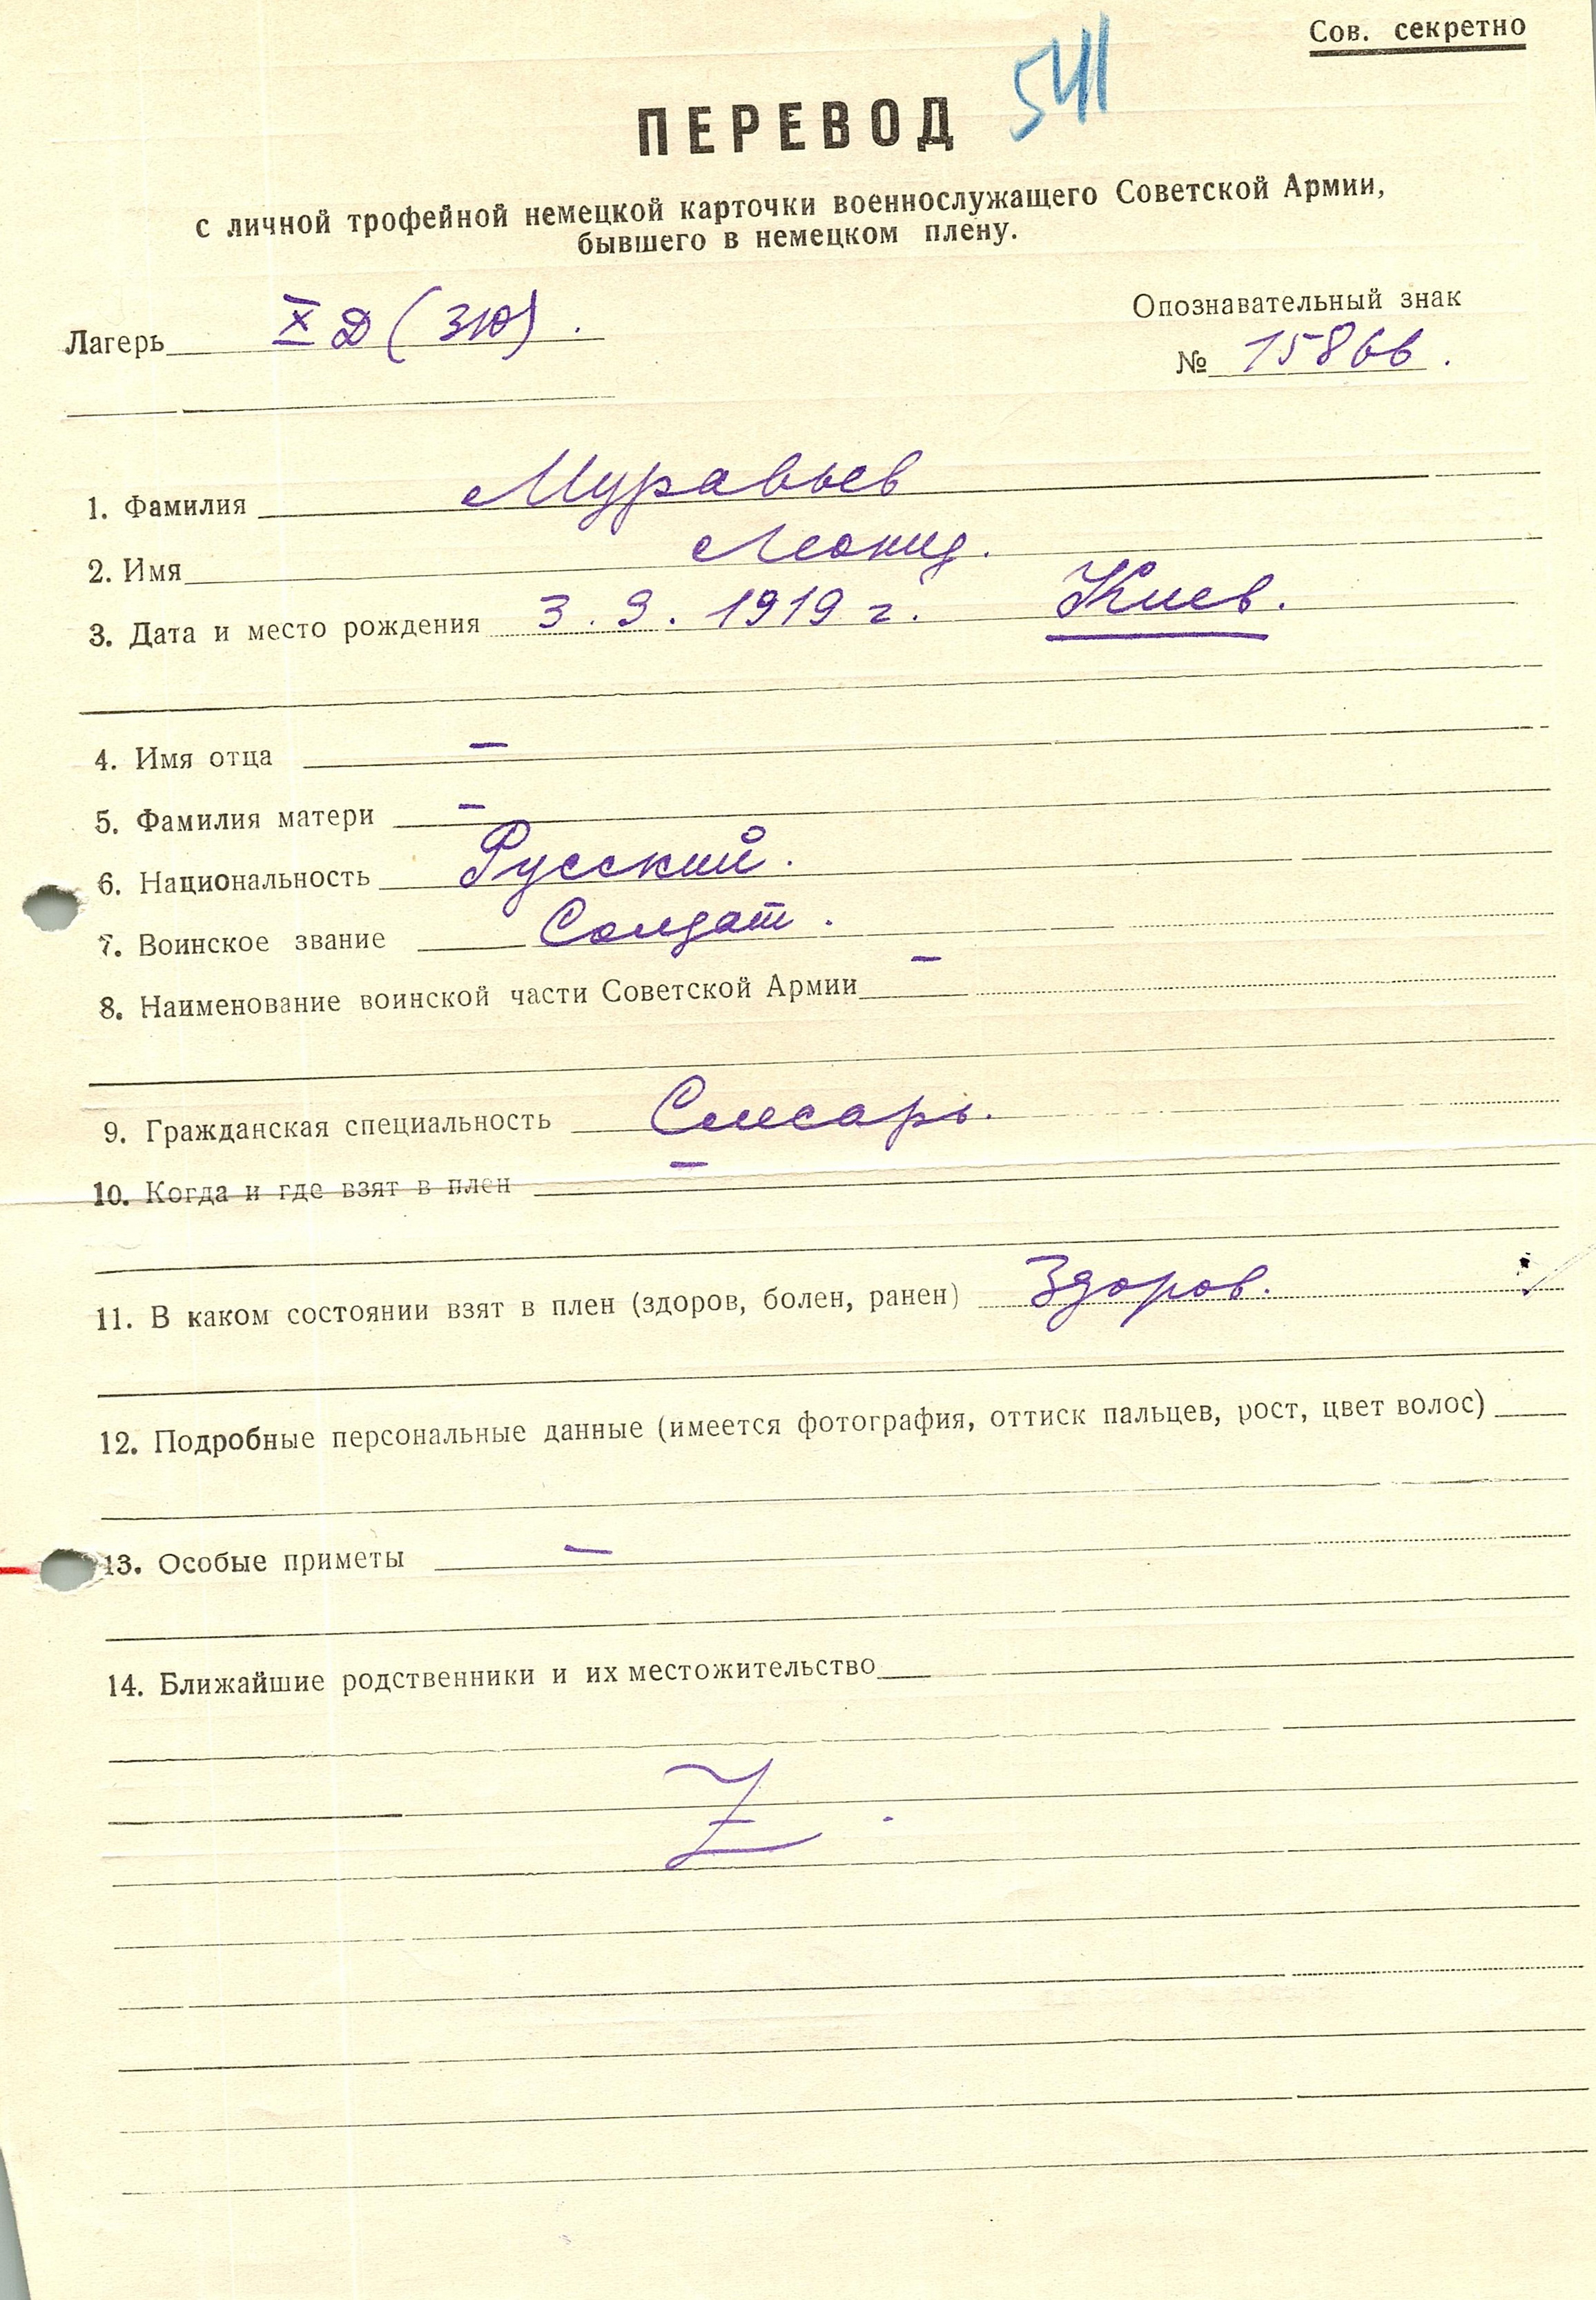 Сов. секретно
541
ПЕРЕВОД
с личной трофейной немецкой карточки военнослужащего Советской Армии,
бывшего в немецком плену.
Лагерь X Д (310).
Опознавательный знак
№ 15866.
1. Фамилия Муравьев
2. Имя Леонид.
3. Дата и место рождения 3. 9. 1919 г. Киев.
4. Имя отца –
5. Фамилия матери –
6. Национальность Русский.
7. Воинское звание Солдат.
8. Наименование воинской части Советской Армии –
9. Гражданская специальность Слесарь.
10. Когда и где взят в плен –
11. В каком состоянии взят в плен (здоров, болен, ранен) Здоров.
12. Подробные персональные данные (имеется фотография, оттиск пальцев, рост, цвет волос)
13. Особые приметы –
14. Ближайшие родственники и их местожительство
Z